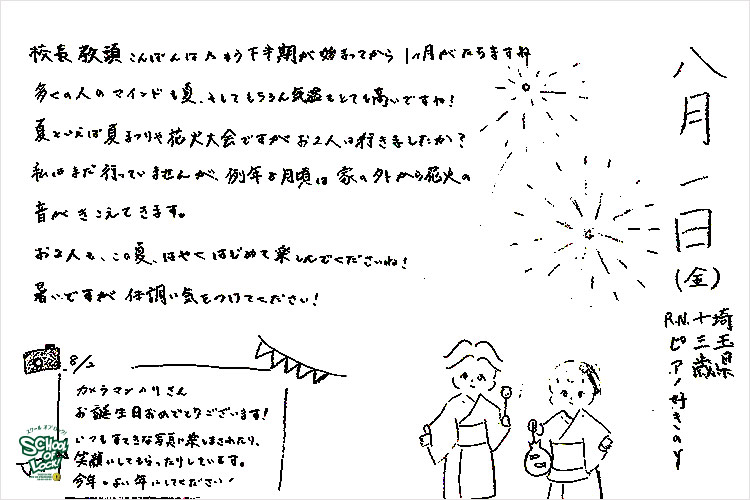 八月一日(金)
埼玉県
十三歳
R.N.ピアノ好きのY
校長教頭こんばんはたもう下半期が始まってから1ヶ月がたちますね
多くの人のマインドも夏、そしてもちろん気温もとても高いですね!
夏といえば夏まつりや花火大会ですがお2人は行きましたか?
私はまだ行っていませんが、例年8月頃は家の外から花火の
音がきこえてきます。
お2人も、この夏、はやくはじめて楽しんでくださいね!
暑いですが体調に気をつけてください!
8/2
カメラマンハリさん
お誕生日おめでとうございます!
いつもすてきな写真に楽しまされたり、
笑顔にしてもらったりしています。
今年もよい年にしてください!
SCHOOL OF LOCK!